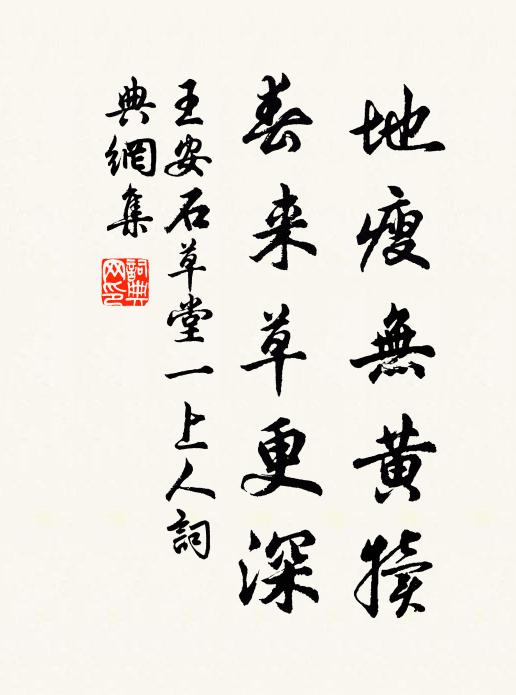 地瘦無黄犢
春来草更深
王安石草堂一上人詞
典網集
詞典网印